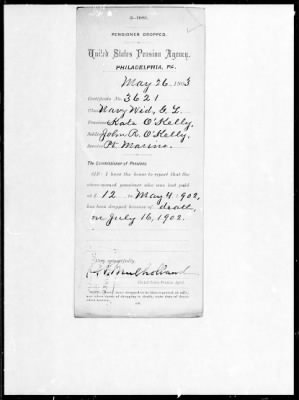 PENSIONER DROPPED.
United States Pension Agency,
PHILADELPHIA, PA.
May 26, 1903
Certificate No. 3621
Class Navy Wid. G. L.
Pensioner Kate O'Kelly
Soldier John R. O'Kelly
Service Pt. Marines.
The Commissioner of Pensions.
SIR: I have the honor to report that the
above-named pensioner who was last paid
at $ 12, to May 4, 1902,
has been dropped because of death,
on July 16, 1902.
Very respectfully,
Mulholland
United States Pension Agent.